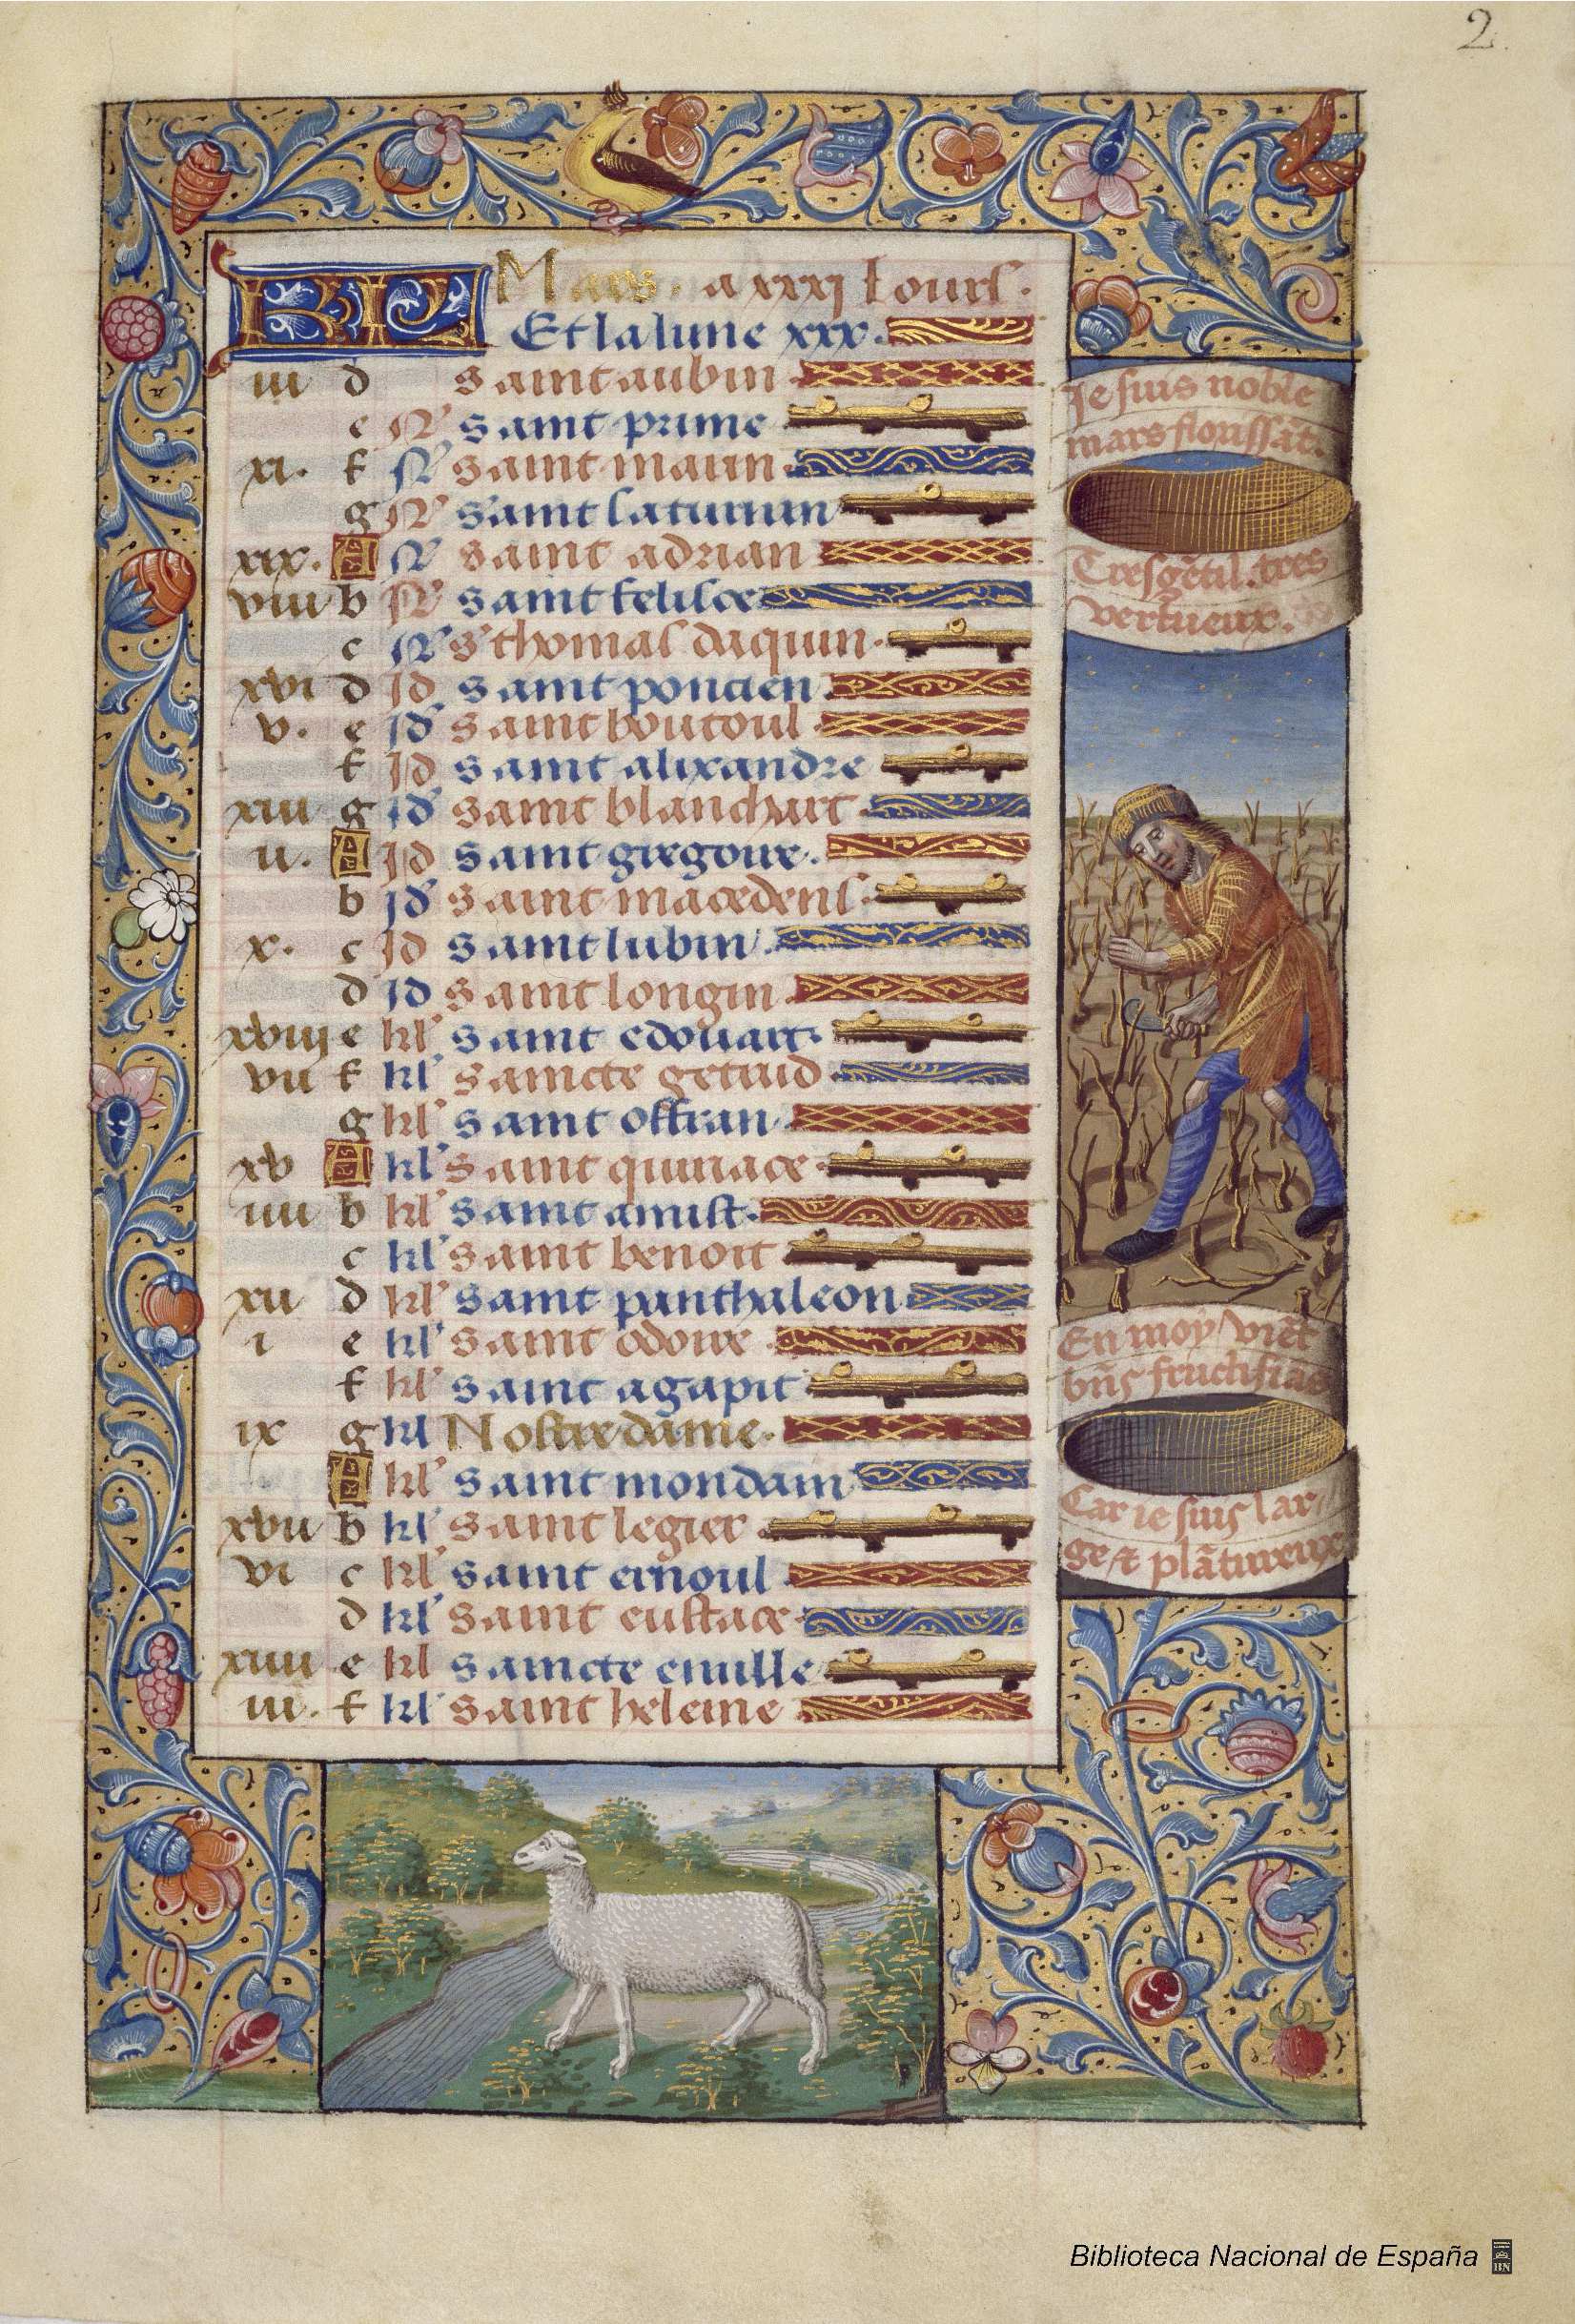 2.
KL Mars. a xxxj Jours.
Et la lune xxx.
iii d saint aubin
e N' saint prime
xi. f N' saint marin
g N' saint saturnin
xix. A N' saint adrian
viii b N' saint felisce
c N' s' thomas daquin
xvi d Jd saint poncien
v. e Jd' saint boutoul
f Jd saint alixandre
xiii g Jd' saint blanchart
ii. A Jd saint gregoire.
b Jd' saint macedens
x. c Jd saint lubin
d Jd saint longin
xviij e kl' saint edouart
vii f kl' saincte getrud
g kl' saint offran
xv A kl' saint quiriace
iiii b kl' saint
c kl' saint benoit
xii d kl' saint panthaleon
i e kl' saint odoire
f kl' saint agapit
ix g kl Nostre dame.
A kl' saint mondain
xvii b kl' saint legier
vi c kl' saint ernoul
d kl' saint eustace
xiiii e kl saincte
iii. f kl' saint heleine
Je suis noble
mars florissãt.
Tresgẽtil. tres
vertueux.
En moy viẽt
bñs fructifians
Car ie suis lar
ge & plãtureux
Biblioteca Nacional de España
BN